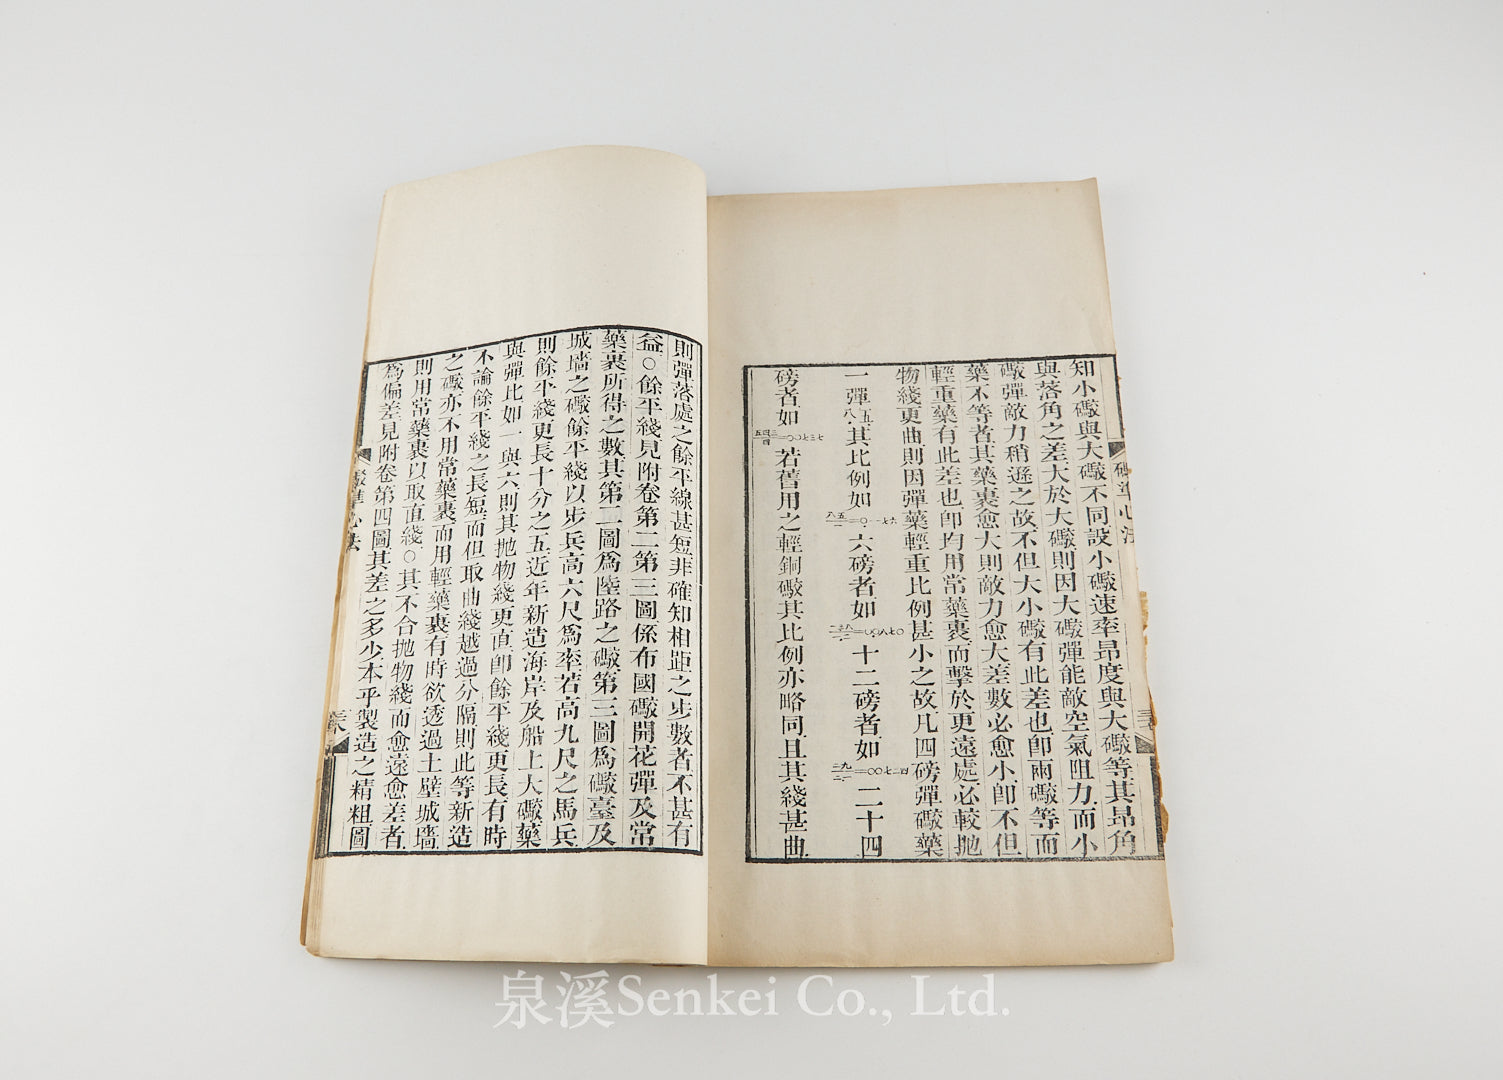 知小礮與大礮不同設小礮速率昻度與大礮等其昻角
與落角之差大於大礮則因大礮彈能敵空氣阻力而小
礮彈敵力稍遜之故不但大小礮有此差也卽兩礮等而
藥不等者其藥裹愈大則敵力愈大差數必愈小卽不但
輕重藥有此差也卽均用常藥裹而擊於更遠處必較抛
物綫更曲則因彈藥輕重比例甚小之故凡四磅彈礮藥
一彈五八其比例如 六磅者如 十二磅者如 二十四
磅者如 若舊用之輕銅礮其比例亦略同且其綫甚曲
心法
則彈落處之餘平線甚短非確知相距之步數者不甚有
益○餘平綫見附卷第二第三圖係布國礮開花彈及常
藥裹所得之數其第二圖爲陸路之礮第三圖爲礮臺及
城墻之礮餘平綫以步兵高六尺爲率若高九尺之馬兵
則餘平綫更長十分之五近年新造海岸及船上大礮藥
與彈比如一與六則其抛物綫更直卽餘平綫更長有時
不論餘平綫之長短而但取曲綫越過分隔則此等新造
之礮亦不用常藥裹而用輕藥裹有時欲透過土壁城墻
則用常藥裹以取直綫○其不合抛物綫而愈遠愈差者
爲偏差見附卷第四圖其差之多少本乎製造之精粗圖
礮準心法
泉溪Senkei Co., Ltd.